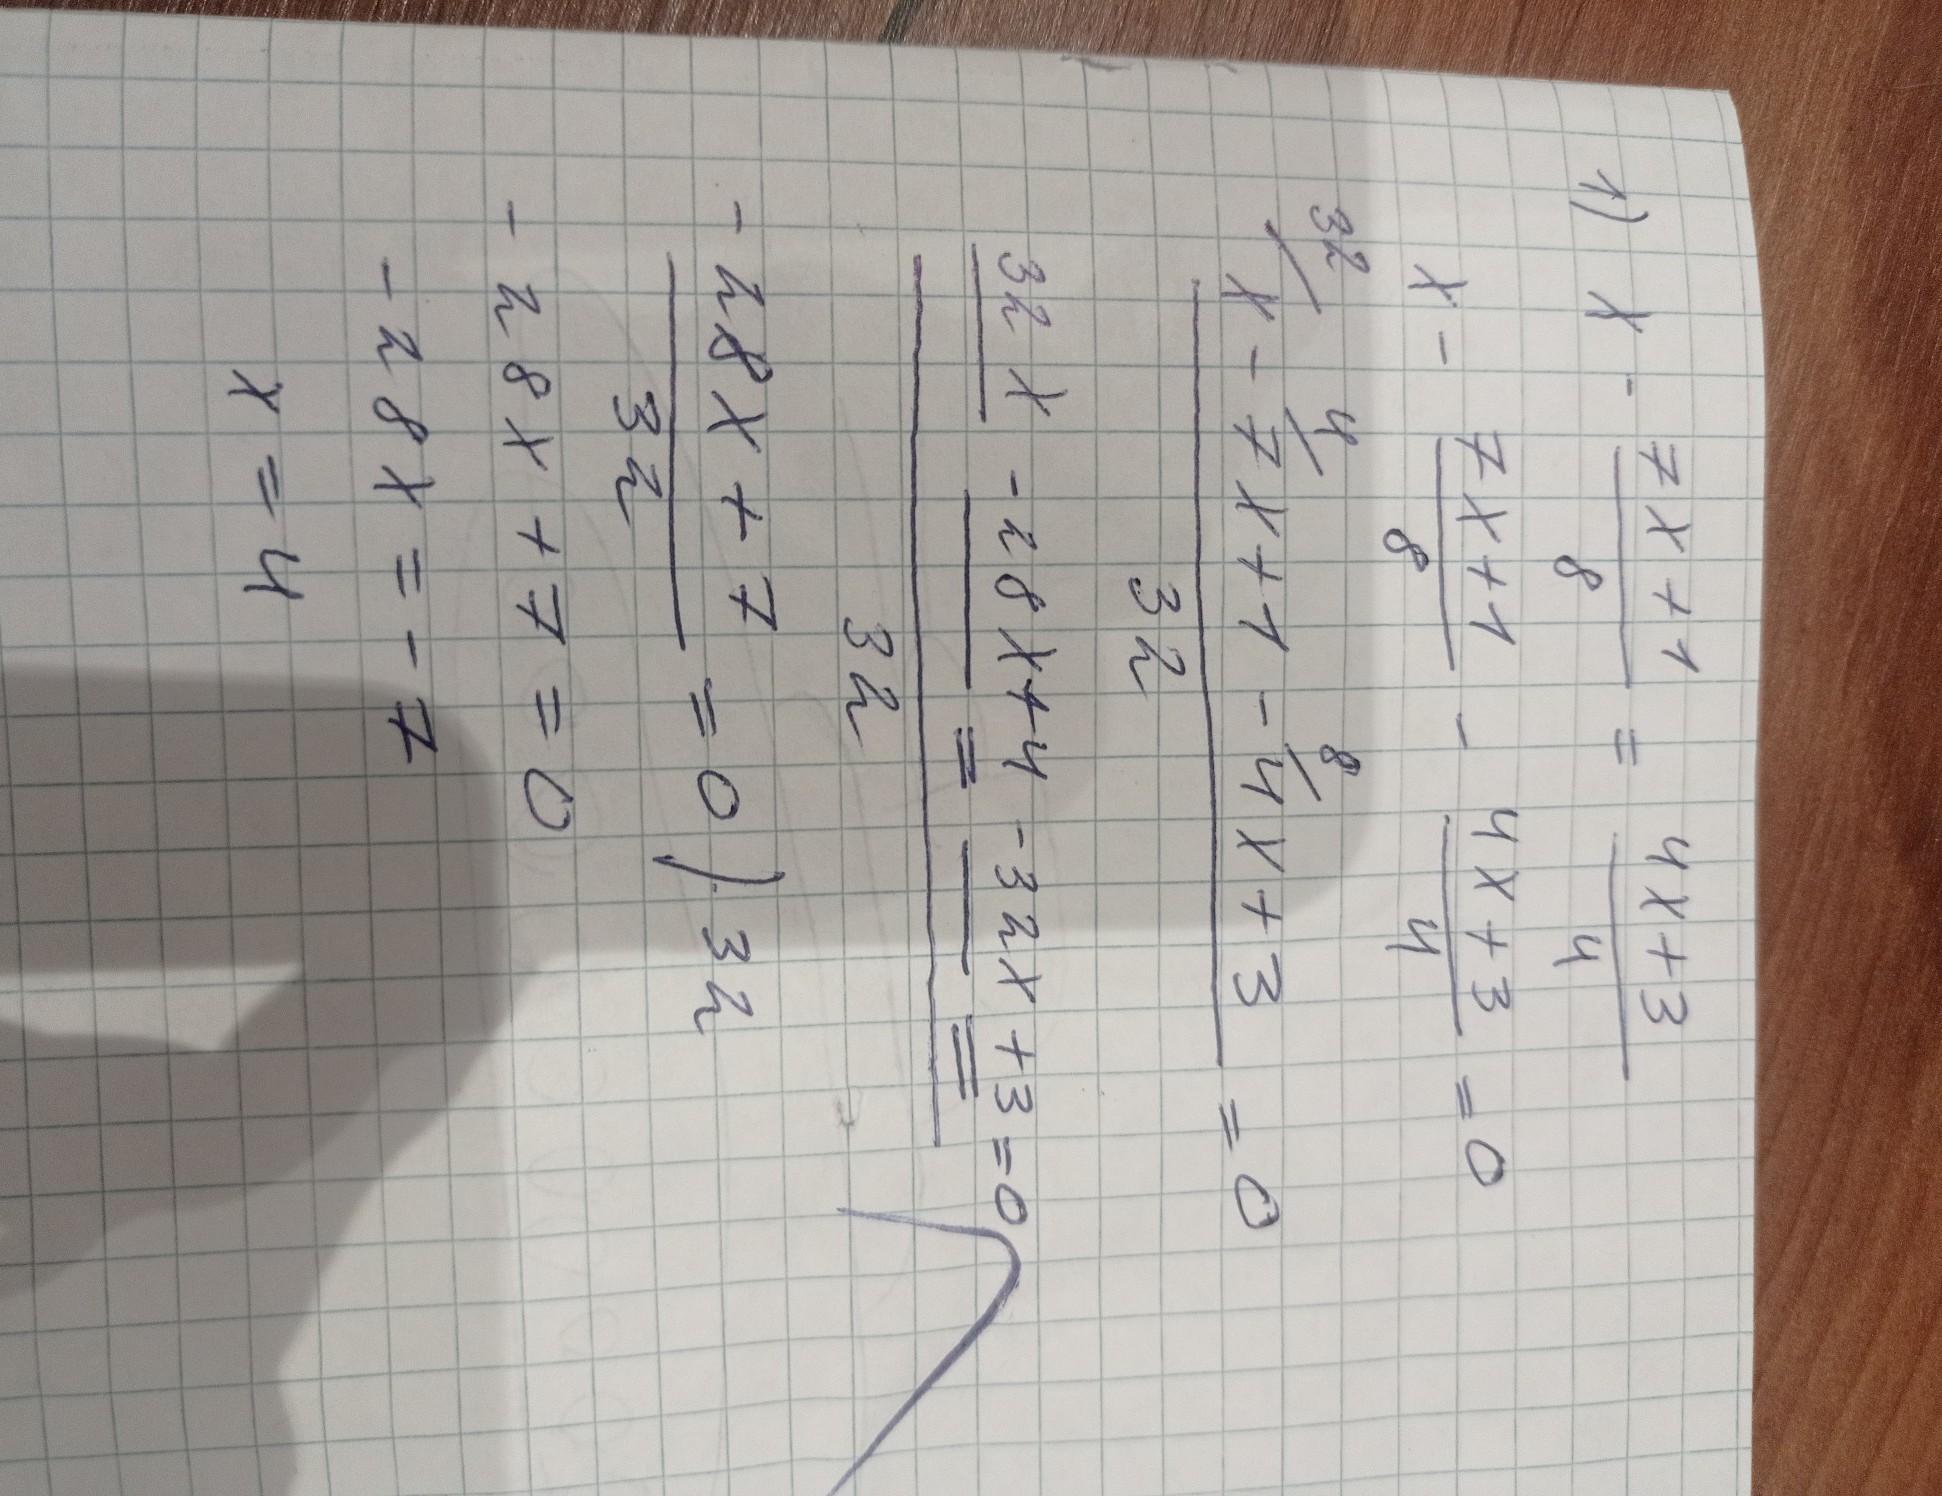 1) x - 7x+1 = 4x+3
8 4
x - 7x+1 - 4x+3 = 0
8 4
32 4 8
x - 7x+1 - 4x+3 = 0
32
32x - 28x+4 - 32x+3=0
32
- 28x+7 = 0 ) 32
32
- 28x+7=0
-28x = -7
x = 4